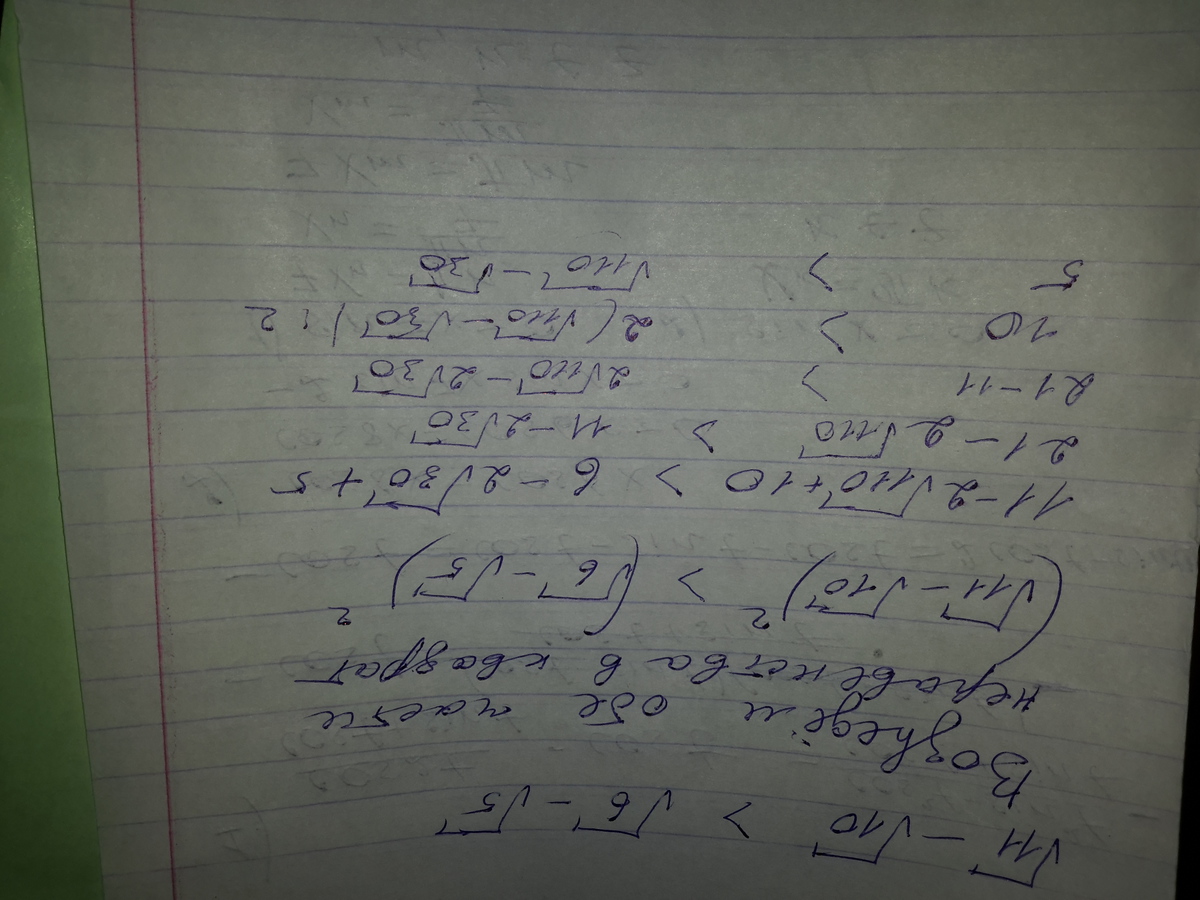 √11 − √10 < √6 − √5
Возведём обе части
неравенства в квадрат
(√11 − √10)² < (√6 − √5)²
11 − 2√110 + 10 < 6 − 2√30 + 5
21 − 2√110 < 11 − 2√30
21 − 11 < 2√110 − 2√30
10 < 2(√110 − √30) | : 2
5 < √110 − √30